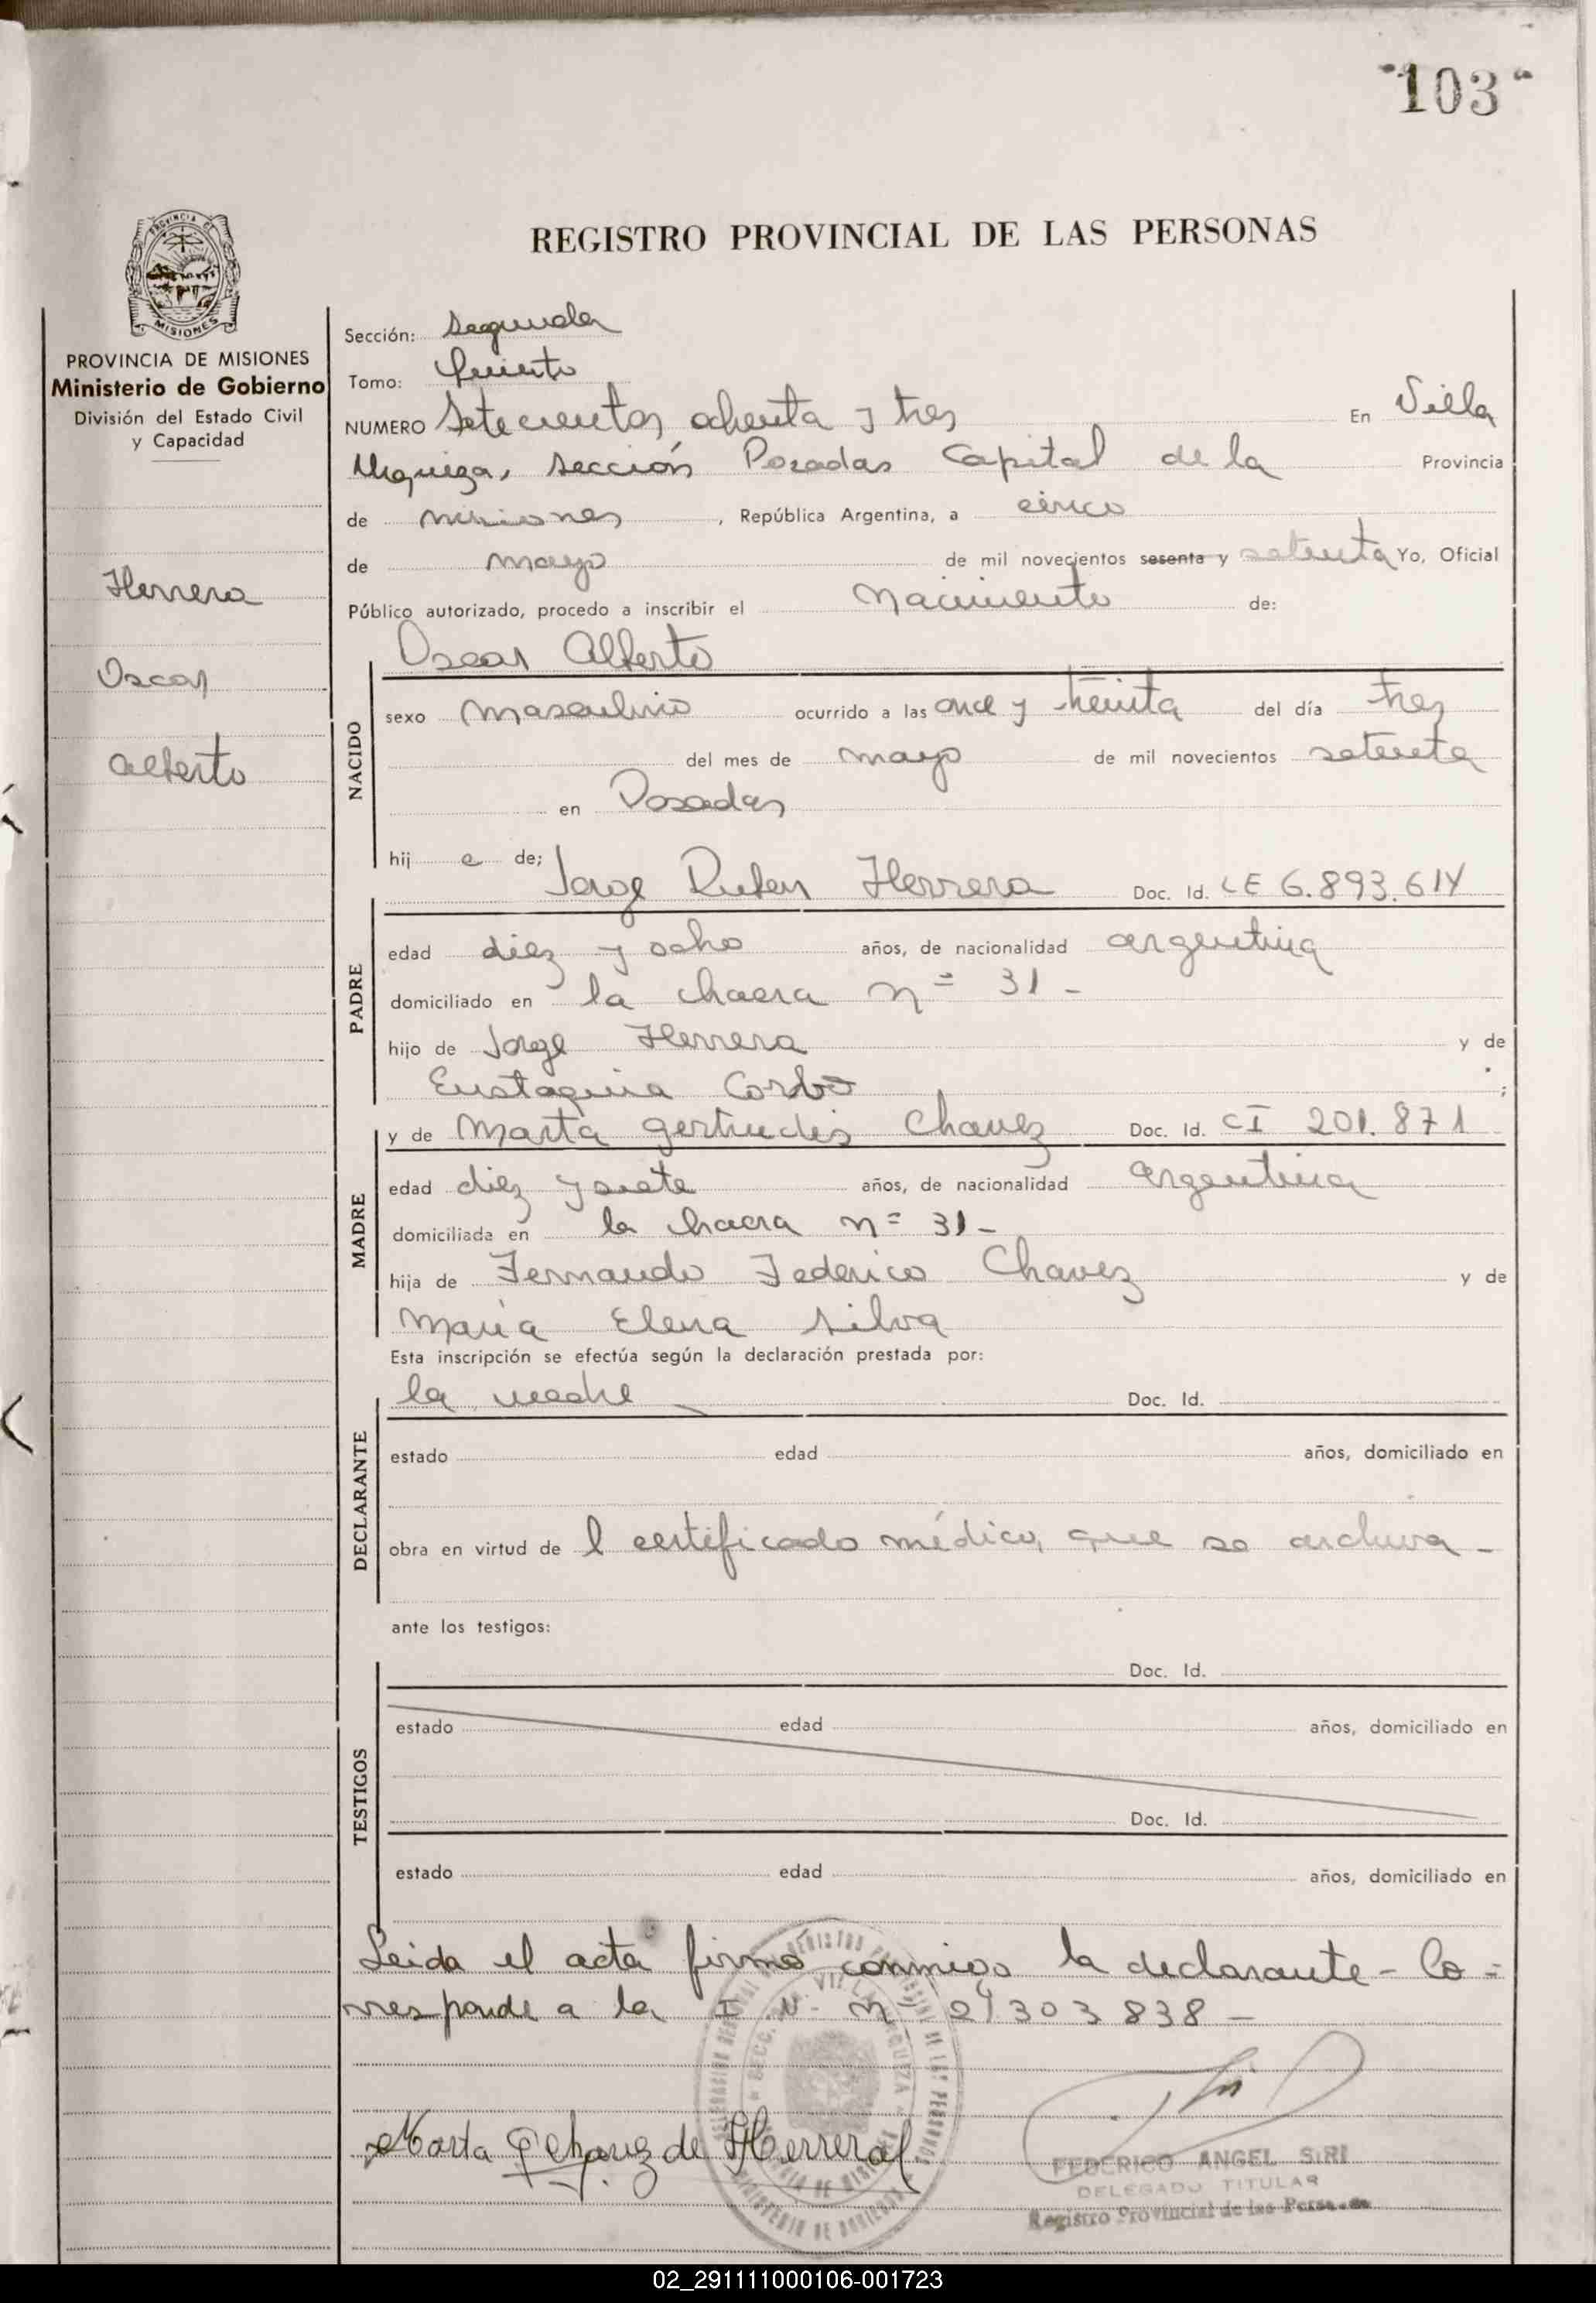 103
REGISTRO PROVINCIAL DE LAS PERSONAS
PROVINCIA DE MISIONES
Ministerio de Gobierno
División del Estado Civil
y Capacidad
Herrera
Oscar
Alberto
Sección: Segunda
Tomo: Quinto
NUMERO Setecientos ochenta y tres En Villa
Urquiza, sección Posadas Capital de la Provincia
de Misiones, República Argentina, a cinco
de mayo de mil novecientos sesenta y setenta Yo, Oficial
Público autorizado, procedo a inscribir el Nacimiento de:
Oscar Alberto
NACIDO
sexo masculino ocurrido a las once y treinta del día tres
del mes de mayo de mil novecientos setenta
en Posadas
hij o de; Jorge Ruben Herrera Doc. Id. LE 6.893.614
PADRE
edad diez y ocho años, de nacionalidad argentina
domiciliado en la chacra nº 31-
hijo de Jorge Herrera y de
Eustaquia Corbo;
y de Marta gertrudis Chavez Doc. Id. CI 201.871
MADRE
edad diez y siete años, de nacionalidad argentina
domiciliada en la chacra nº 31-
hija de Fernando Federico Chavez y de
Maria Elena Silva
Esta inscripción se efectúa según la declaración prestada por:
la madre Doc. Id.
DECLARANTE
estado edad años, domiciliado en
obra en virtud de l certificado médico, que se archiva-
ante los testigos:
Doc. Id.
TESTIGOS
estado edad años, domiciliado en
Doc. Id.
estado edad años, domiciliado en
Leida el acta firmó conmigo la declarante- Co=
rresponde a la I N- nº 21303838-
Marta G Chavez de Herrera
FEDERICO ANGEL SIRI
DELEGADO TITULAR
Registro Provincial de las Personas
02_291111000106-001723